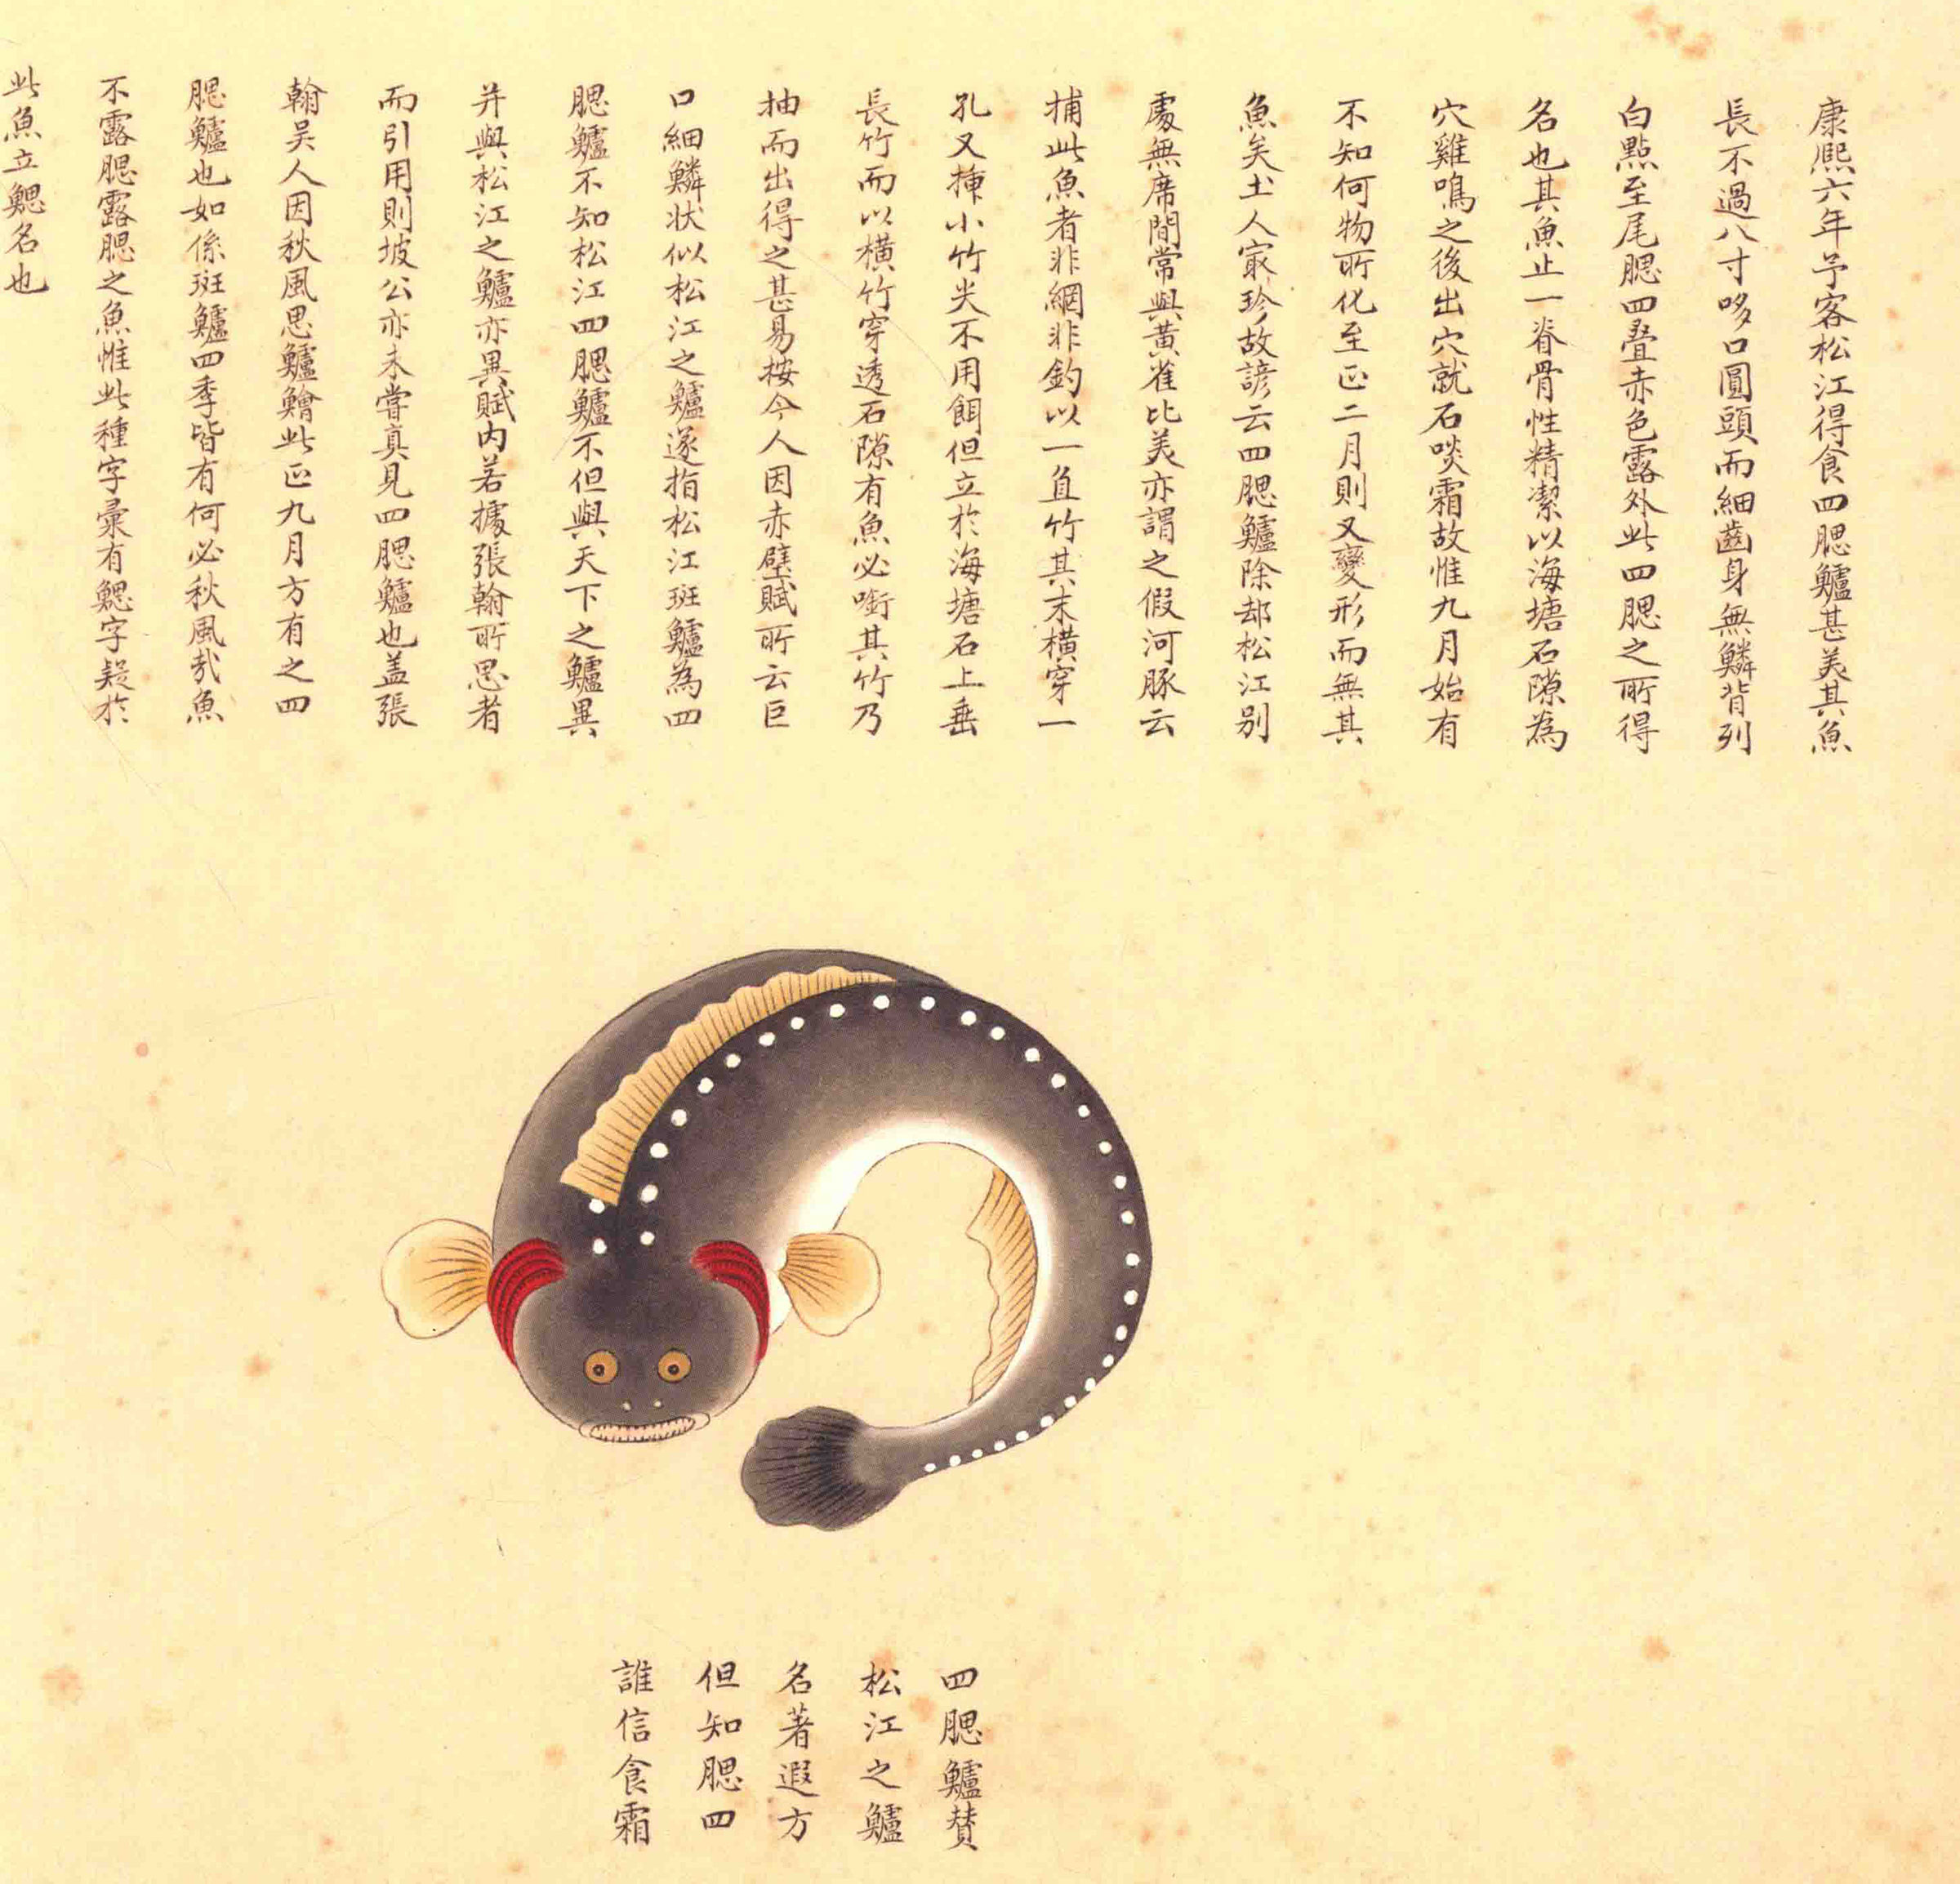 康熈六年予客松江得食四腮鱸甚美其魚
長不過八寸哆口圓頭而細齒身無鱗背列
白點至尾腮四疊赤色露外此四腮之所得
名也其魚止一脊骨性精潔以海塘石隙為
穴雞鳴之後出穴就石啖霜故惟九月始有
不知何物所化至正二月則又變形而無其
魚矣土人㝡珍故諺云四腮鱸除却松江别
處無席間常與黃雀比美亦謂之假河豚云
捕此魚者非網非釣以一直竹其末橫穿一
孔又揷小竹尖不用餌但立於海塘石上垂
長竹而以橫竹穿透石隙有魚必啣其竹乃
抽而出得之甚易按今人因赤壁賦所云巨
口細鱗状似松江之鱸遂指松江斑鱸為四
腮鱸不知松江四腮鱸不但與天下之鱸異
并與松江之鱸亦異賦内若據張翰所思者
而引用則坡公亦未嘗真見四腮鱸也盖張
翰吴人因秋風思鱸鱠此正九月方有之四
腮鱸也如係斑鱸四季皆有何必秋風㢤魚
不露腮露腮之魚惟此種字彙有鰓字疑於
此魚立鰓名也
四腮鱸賛
松江之鱸
名著遐方
但知腮四
誰信食霜